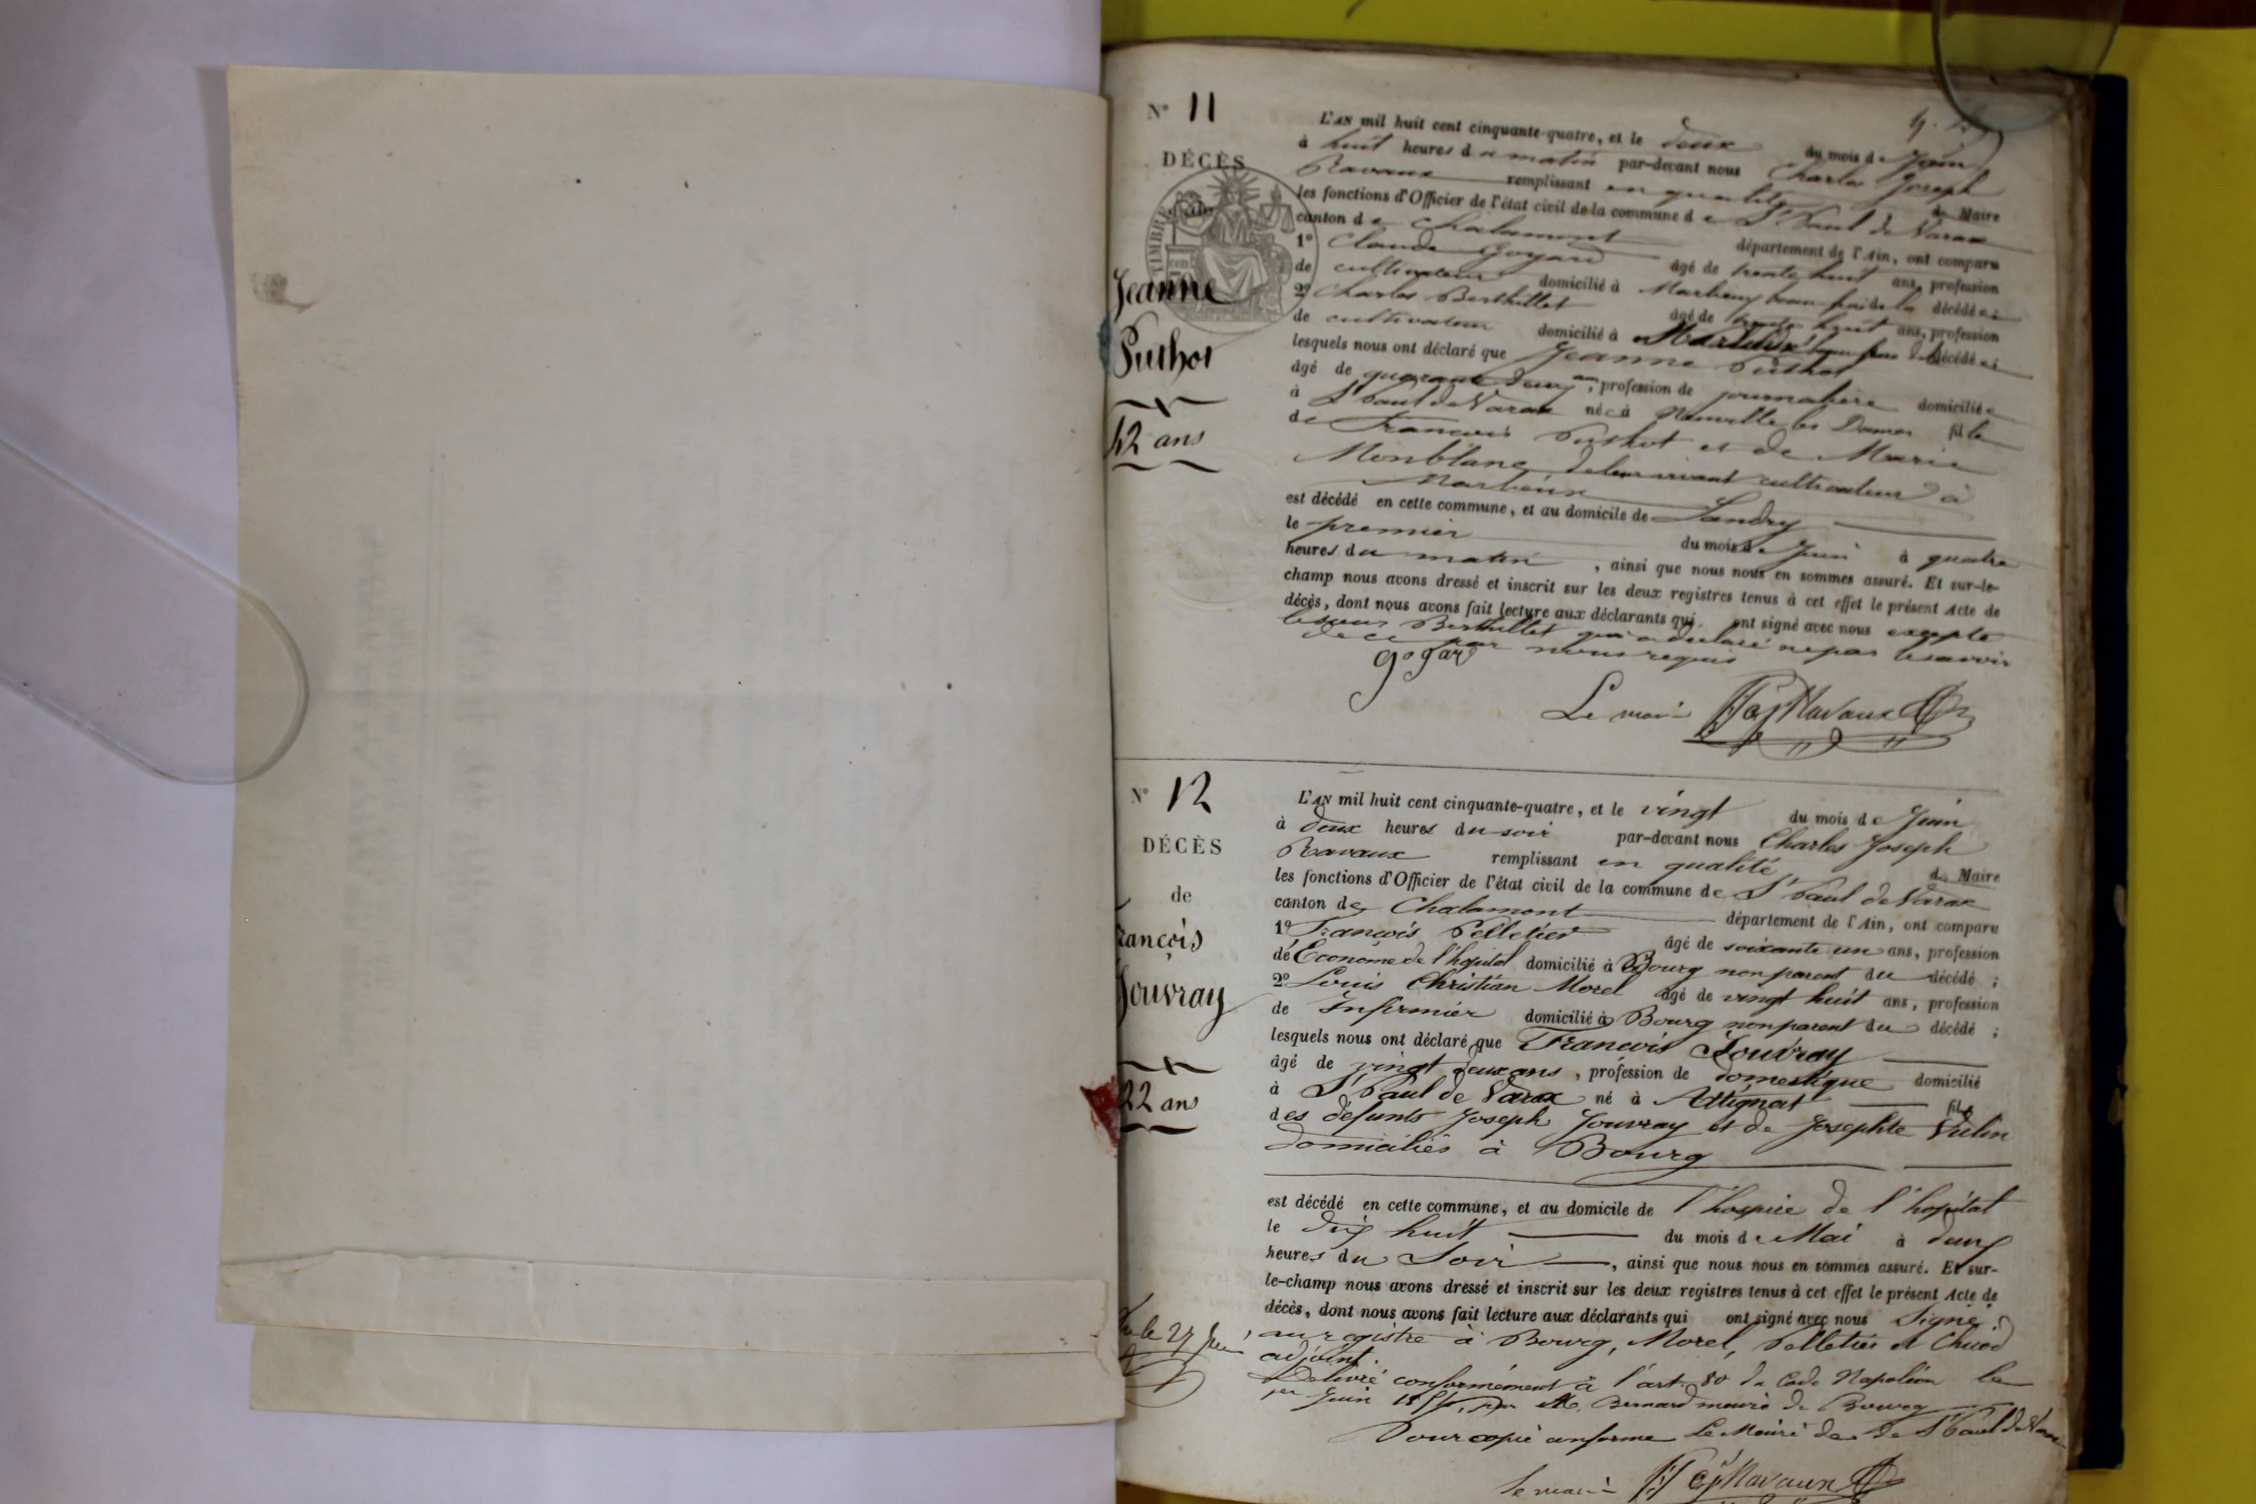 N° 11
DÉCÈS
TIMBRE
Jeanne
Puthot
42 ans
L'AN mil huit cent cinquante-quatre, et le deux du mois de Juin
à huit heures du matin par-devant nous Charles Joseph
Ravaux remplissant en qualité de Maire
les fonctions d'Officier de l'état civil de la commune de St Paul de Varax
canton de Chalamont département de l'Ain, ont comparu
1° Claude Goyard âgé de trente huit ans, profession
de cultivateur domicilié à Marlieux beau frère de la décédée ;
2° Charles Berthillet âgé de trente huit ans, profession
de cultivateur domicilié à Marlieux beau frère de la décédée ;
lesquels nous ont déclaré que Jeanne Puthot
âgé de quarante deux ans, profession de journalière domiciliée
à St Paul de Varax née à Neuville les Dames fille
de François Puthot et de Marie
Monblanc de leur vivant cultivateurs à
Marlieux
est décédé en cette commune, et au domicile de Landry
le premier du mois de Juin à quatre
heures du matin, ainsi que nous nous en sommes assuré. Et sur-le-
champ nous avons dressé et inscrit sur les deux registres tenus à cet effet le présent Acte de
décès, dont nous avons fait lecture aux déclarants qui ont signé avec nous excepté
le sieur Berthillet qui a déclaré ne pas le savoir
de ce par nous requis
gogard
Le maire Ravaux
N° 12
DÉCÈS
de
François
Jouvray
22 ans
L'AN mil huit cent cinquante-quatre, et le vingt du mois de Juin
à deux heures du soir par-devant nous Charles Joseph
Ravaux remplissant en qualité de Maire
les fonctions d'Officier de l'état civil de la commune de St Paul de Varax
canton de Chalamont département de l'Ain, ont comparu
1° François Pelletier âgé de soixante un ans, profession
de Econome de l'hôpital domicilié à Bourg non parent du décédé ;
2° Louis Christian Morel âgé de vingt huit ans, profession
de Infirmier domicilié à Bourg non parent du décédé ;
lesquels nous ont déclaré que François Jouvray
âgé de vingt deux ans, profession de domestique domicilié
à St Paul de Varax né à Attignat fils
des défunts Joseph Jouvray et de Josephte Vulin
domiciliés à Bourg
est décédé en cette commune, et au domicile de l'hospice de l'hôpital
le dix huit du mois de Mai à deux
heures du Soir, ainsi que nous nous en sommes assuré. Et sur-
le-champ nous avons dressé et inscrit sur les deux registres tenus à cet effet le présent Acte de
décès, dont nous avons fait lecture aux déclarants qui ont signé avec nous Signé
au registre à Bourg, Morel, Pelletier et
adjoint.
Délivré conformément à l'art. 80 du Code Napoléon le
1er Juin 1854, par M. Bernard maire de Bourg
Pour copie conforme Le Maire de St Paul de Varax
Le maire Ravaux
Vu le 27 Juin